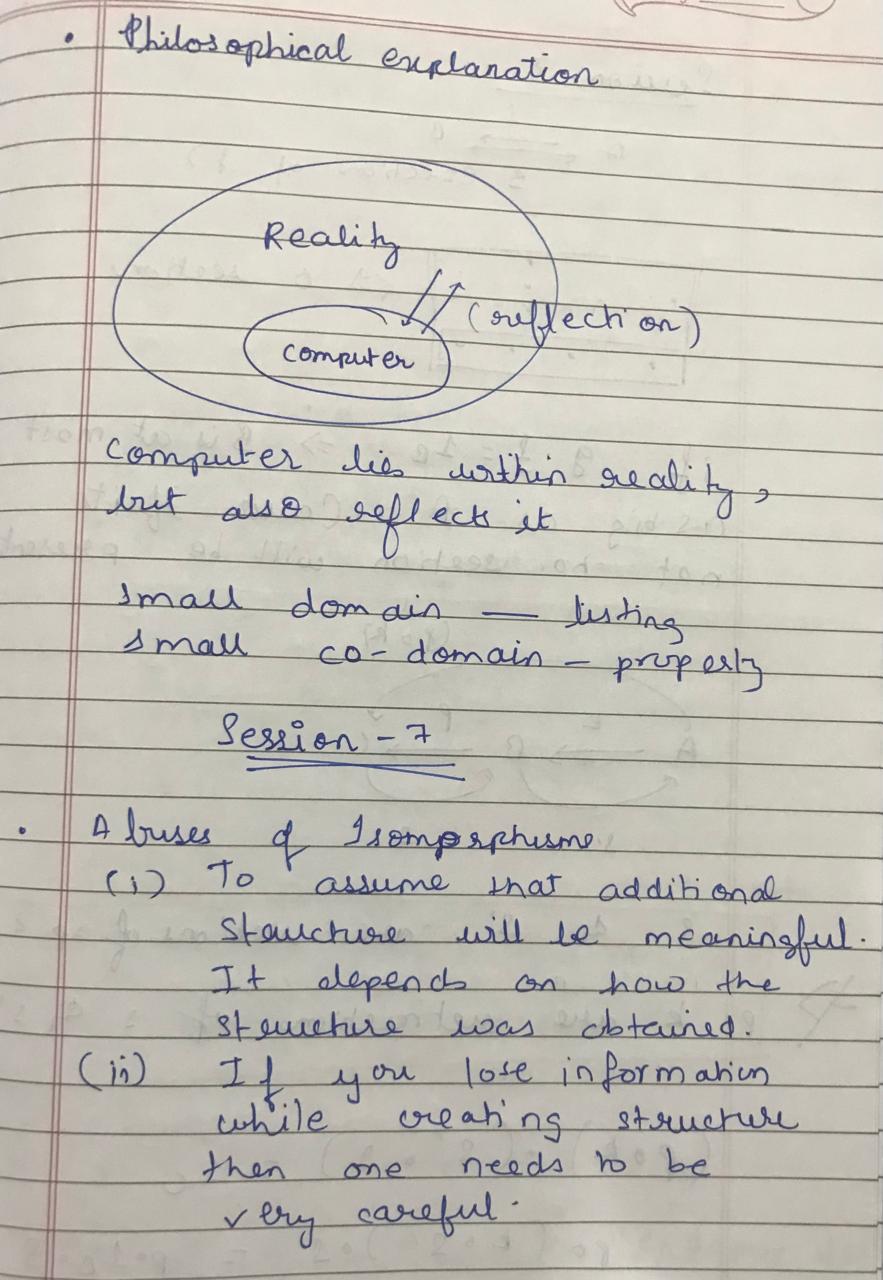 • Philosophical explanation
Reality
(reflection)
computer
computer lies within reality,
but also reflects it
small domain — testing
small co-domain — property
Session - 7
• Abuses of Isomorphisms
(i) To assume that additional
structure will be meaningful.
It depends on how the
structure was obtained.
(ii) If you lose information
while creating structure
then one needs to be
very careful.